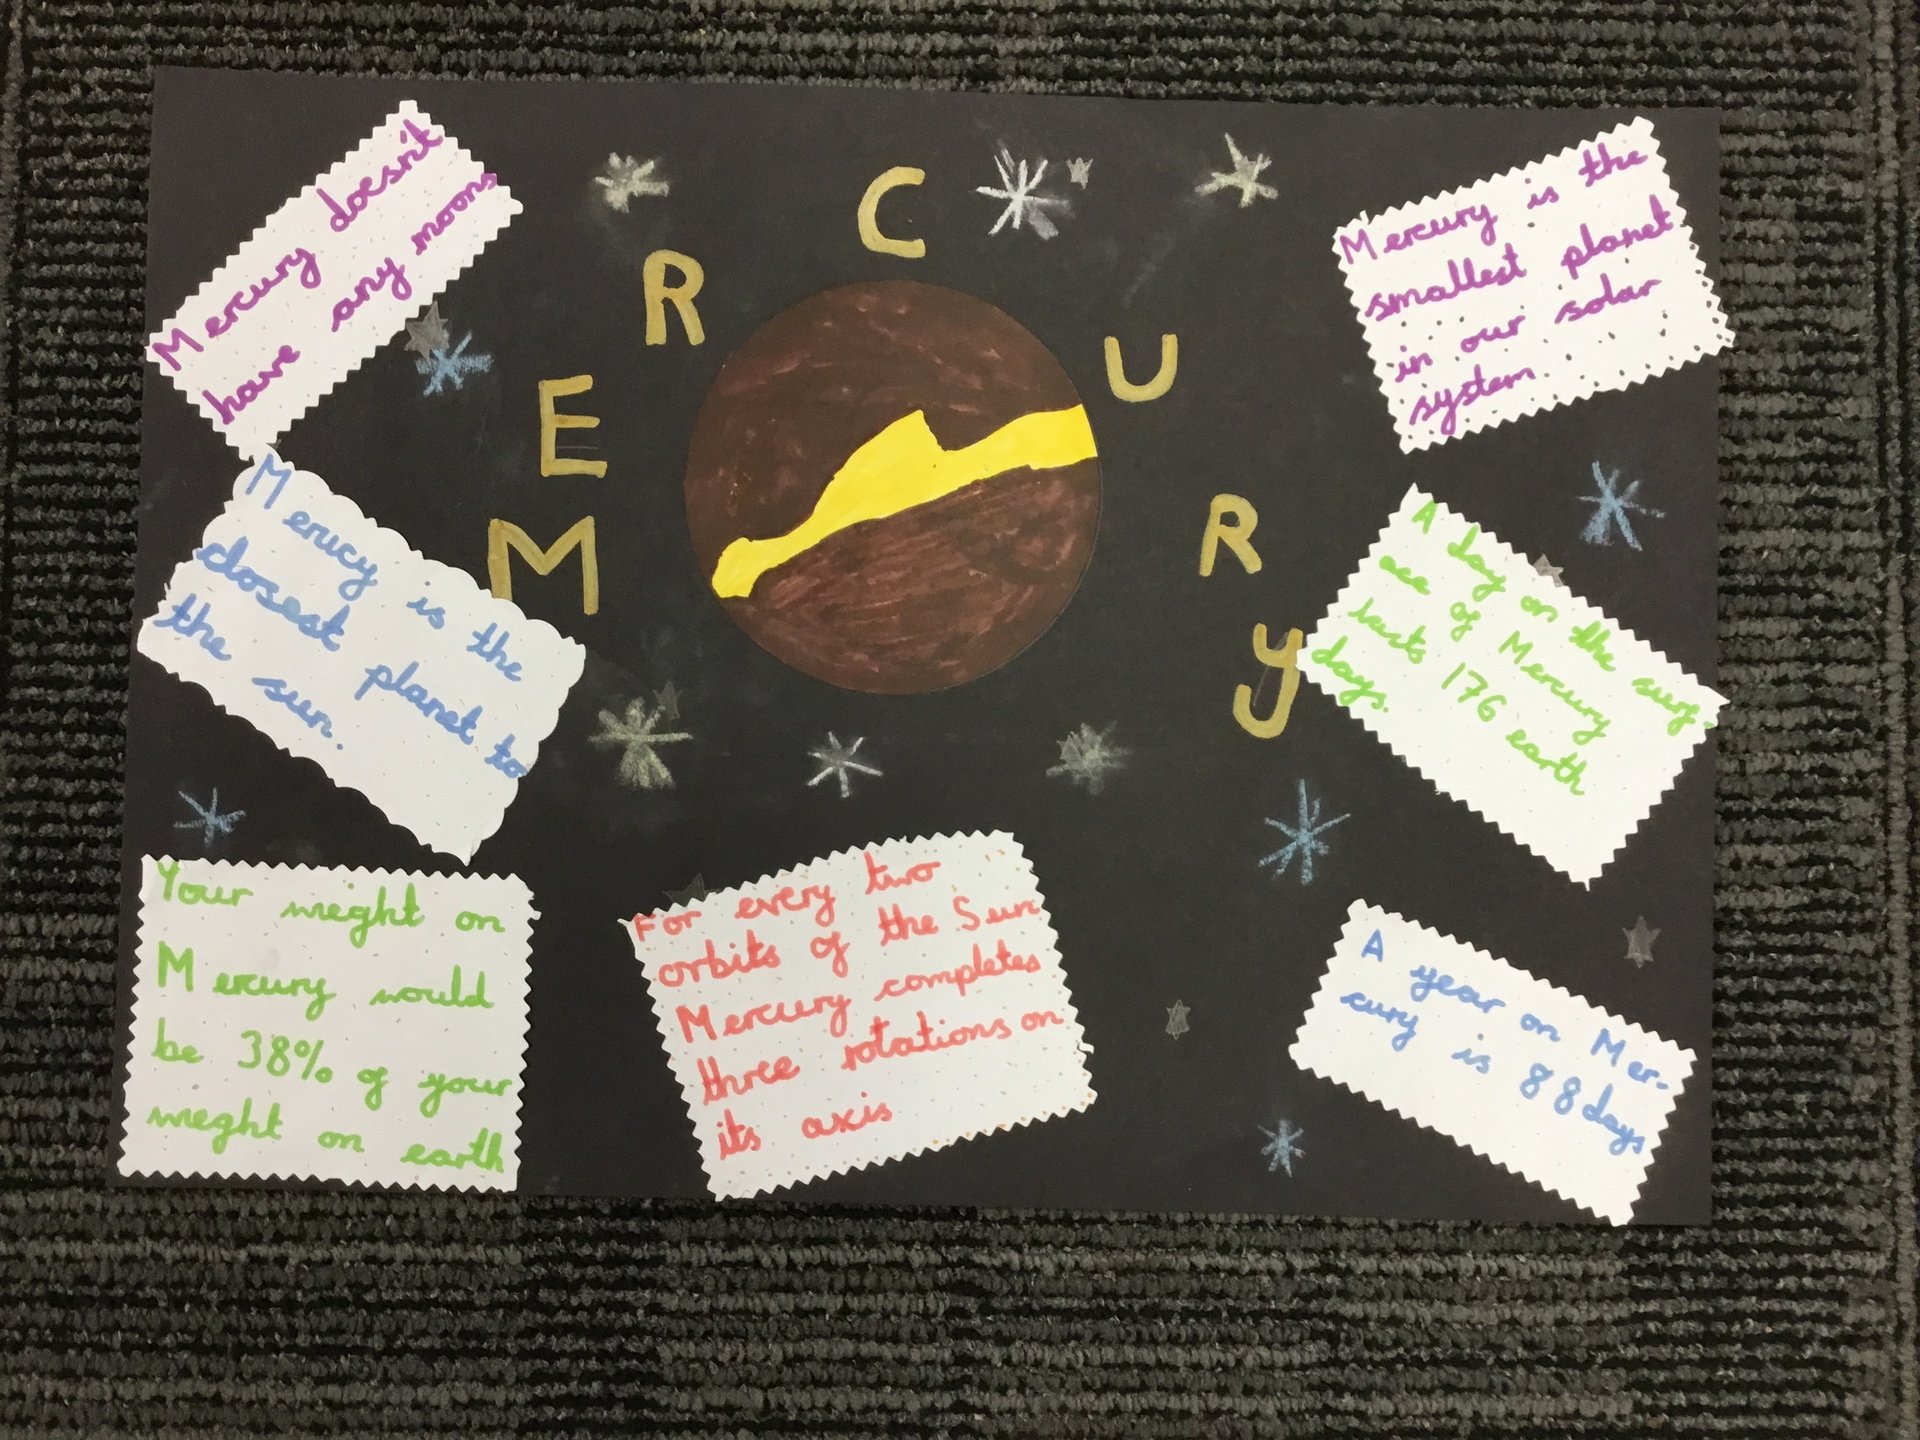 MERCURY
Mercury doesn't
have any moons
Merucy is the
closest planet to
the sun.
Your meght on
Mercury would
be 38% of your
meght on earth
For every two
orbits of the Sun
Mercury completes
three rotations on
its axis
Mercury is the
smallest planet
in our solar
system.
A day on the surf-
ace of Mercury
lasts 176 earth
days.
A year on Mer-
cury is 88 days